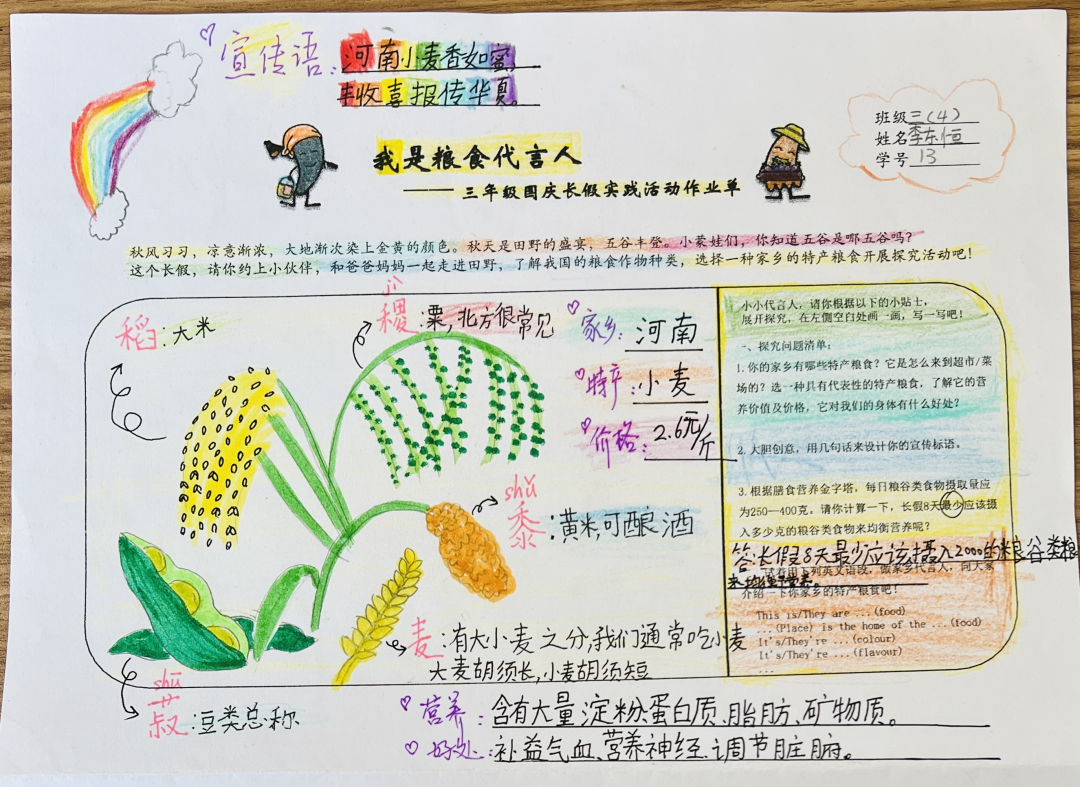 宣传语：河南小麦香如蜜，
丰收喜报传华夏。
班级三(4)
姓名李东恒
学号13
我是粮食代言人
——三年级国庆长假实践活动作业单
秋风习习，凉意渐浓，大地渐次染上金黄的颜色。秋天是田野的盛宴，五谷丰登。小蒙娃们，你知道五谷是哪五谷吗？
这个长假，请你约上小伙伴，和爸爸妈妈一起走进田野，了解我国的粮食作物种类，选择一种家乡的特产粮食开展探究活动吧！
稻：大米
jì
稷：粟，北方很常见
家乡：河南
特产：小麦
价格：2.6元/斤
shǔ
黍：黄米，可酿酒
麦：有大小麦之分，我们通常吃小麦
大麦胡须长，小麦胡须短
shū
菽：豆类总称
小小代言人，请你根据以下的小贴士，
展开探究，在左侧空白处画一画，写一写吧！
一、探究问题清单：
1.你的家乡有哪些特产粮食？它是怎么来到超市/菜
场的？选一种具有代表性的特产粮食，了解它的营
养价值及价格，它对我们的身体有什么好处？
2.大胆创意，用几句话来设计你的宣传标语。
3.根据膳食营养金字塔，每日粮谷类食物摄取量应
为250—400克。请你计算一下，长假8天最少应该摄
入多少克的粮谷类食物来均衡营养呢？
答：长假8天最少应该摄入2000的粮谷类粮
介绍一下你家乡的特产粮食吧！
This is/They are ...(food)
...(Place) is the home of the ...(food)
It's/They're ...(colour)
It's/They're ...(flavour)
...
营养：含有大量淀粉、蛋白质、脂肪、矿物质。
好处：补益气血、营养神经、调节脏腑。